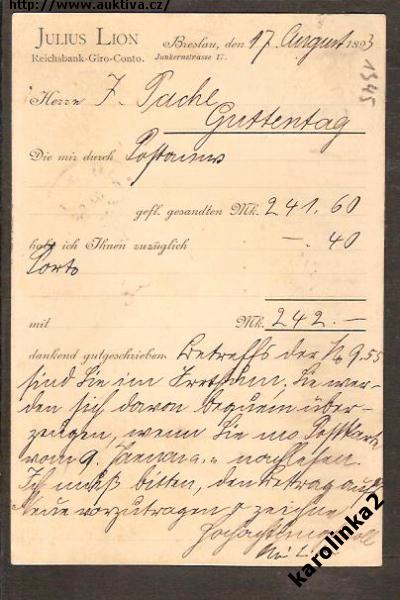 http://www.auktiva.cz/
JULIUS LION
Reichsbank-Giro-Conto.
Breslau, den 17 August 1893
Junkernstrasse 17.
1345
Herrn J. Pache
Guttentag
Die mir durch Postanws
gefl. gesandten Mk. 241.60
habe ich Ihnen zuzüglich —.40
Porto
mit Mk. 242.—
dankend gutgeschrieben. Betreffs der M 9.55
sind Sie im Irrthum. Sie wer-
den sich davon bequem über-
zeugen, wenn Sie Postkarte
vom 9. Januar nachlesen.
Ich muß bitten, den Betrag aufs
Neue vorzutragen & zeichne
Hochachtungsvoll
karolinka2